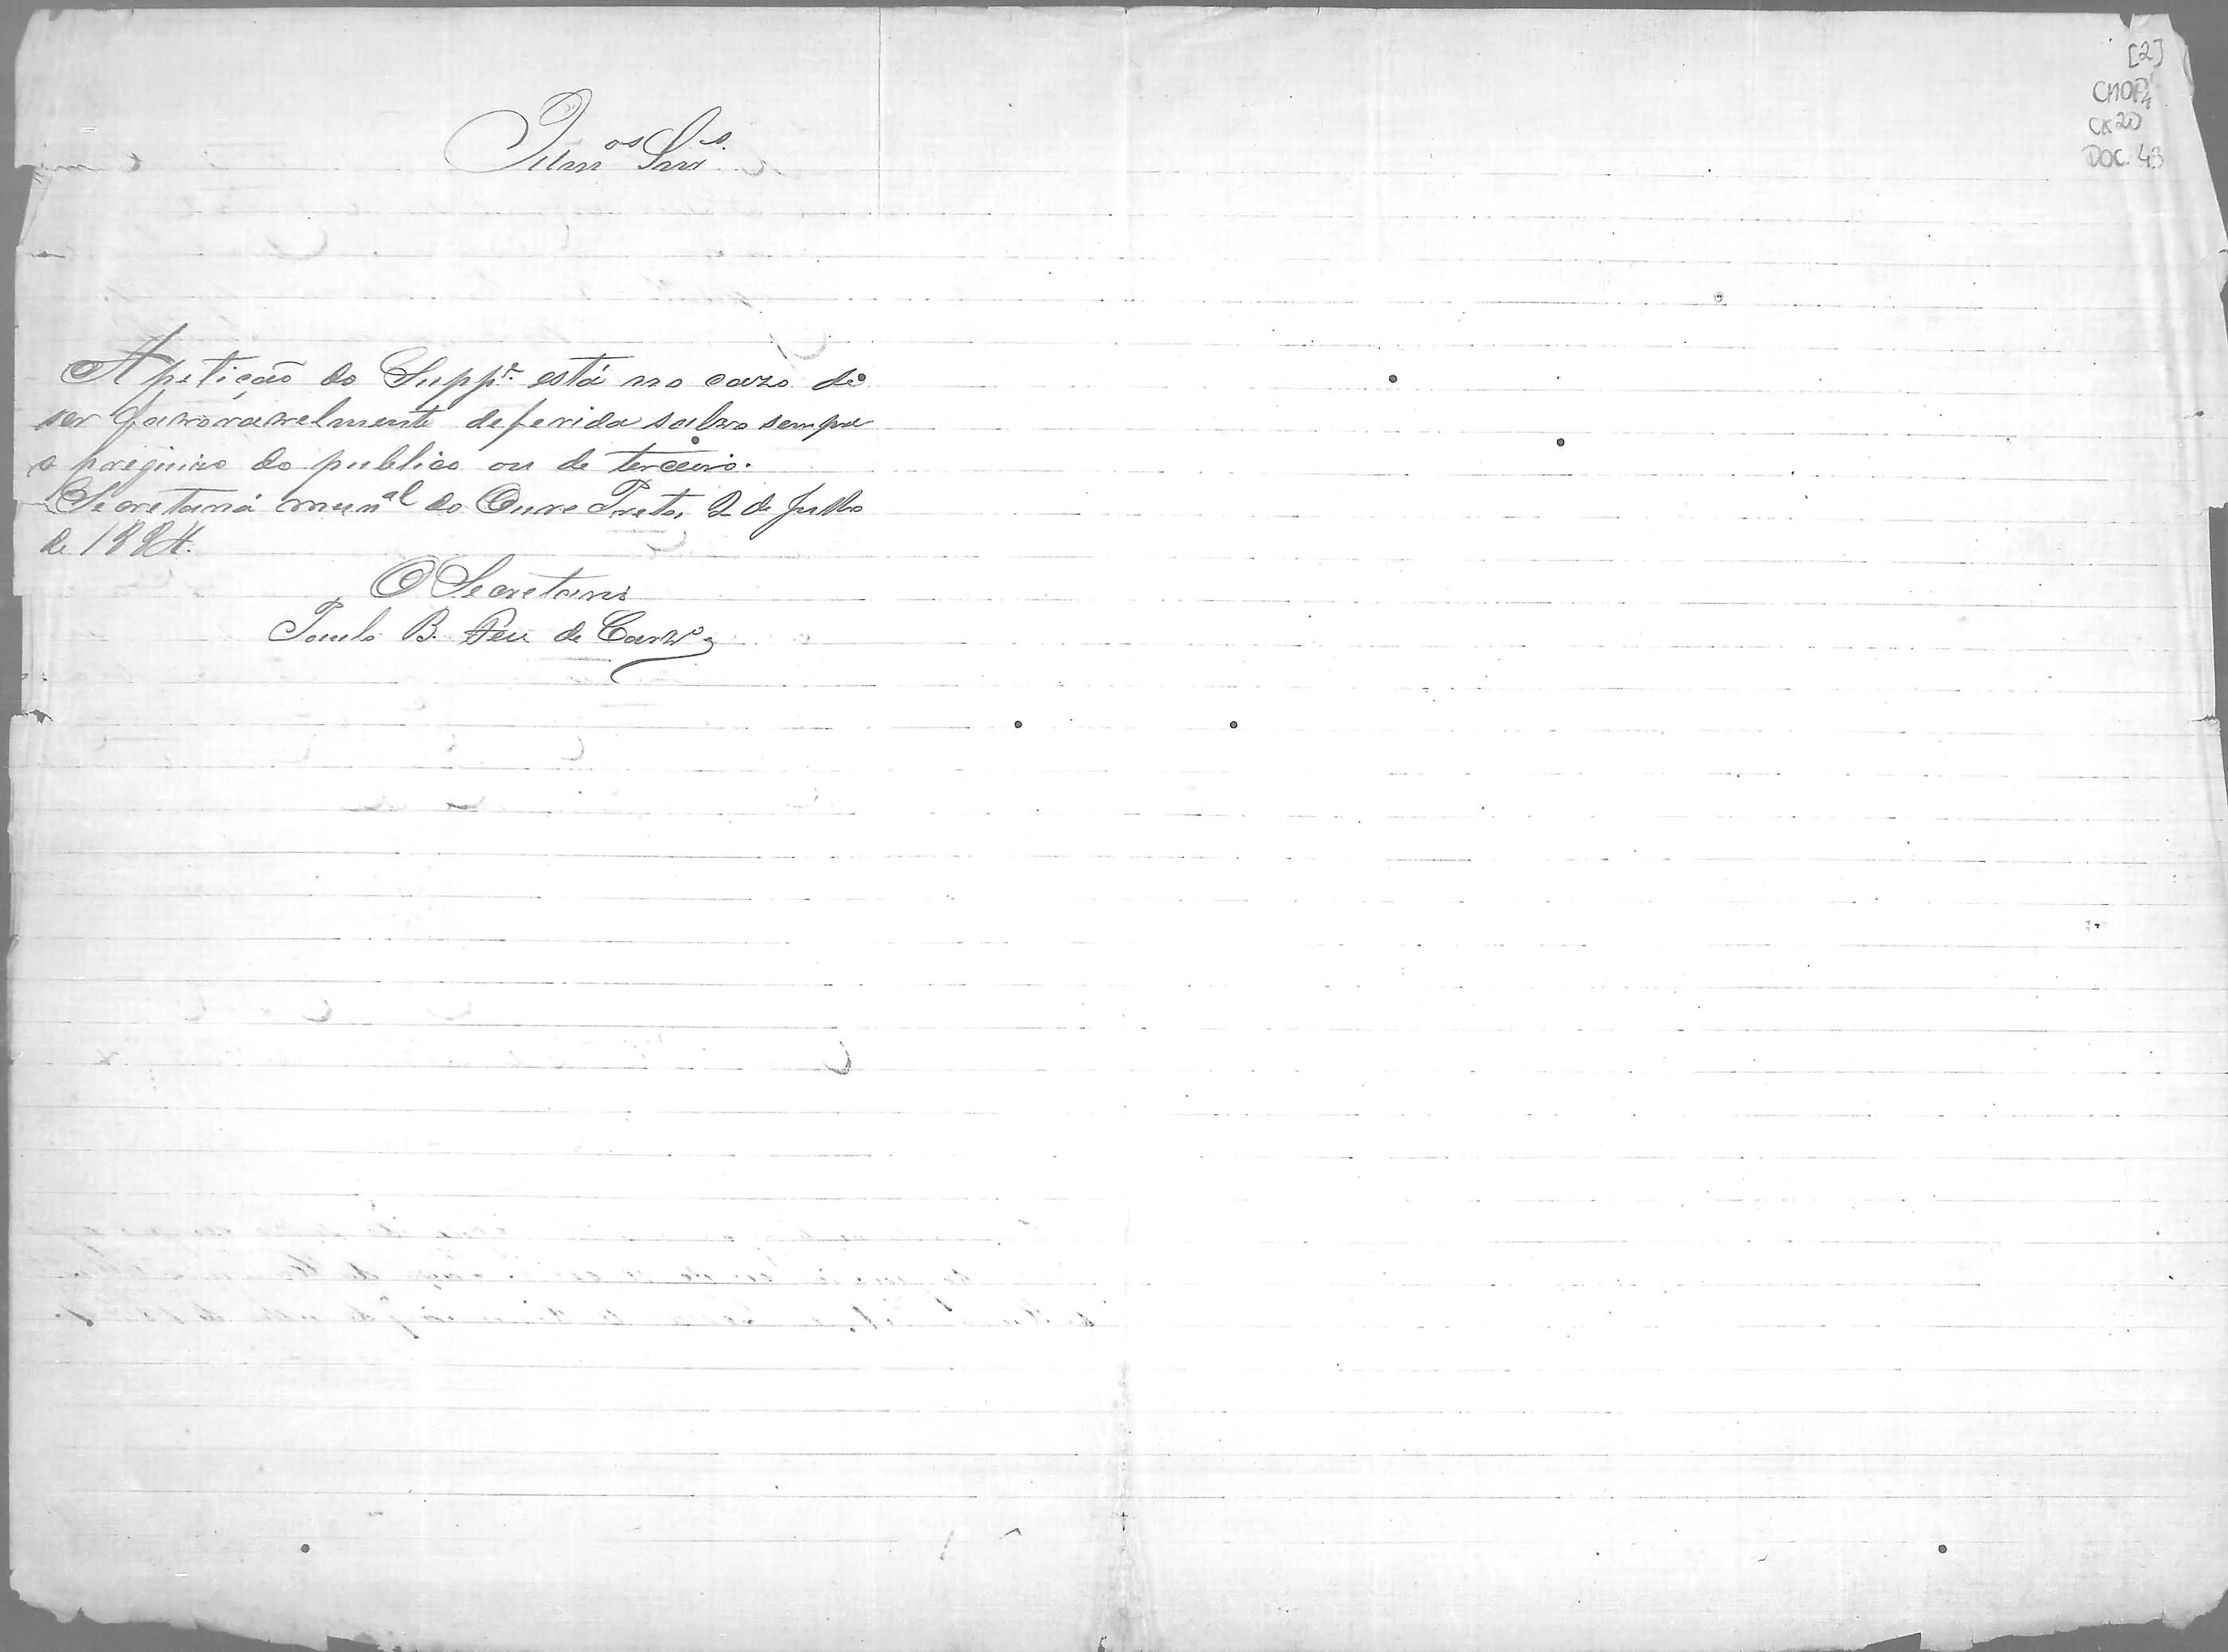 [2]
CMOP
CX 20
DOC. 43
Illmos Snrs.
A petição do Suppe. está no cazo de
ser favoravelmente deferida salvo sempre
o prejuizo do publico ou de terceiro.
Secretaria munal do Ouro Preto, 2 de Julho
de 1884.
O Secretario
Paulo B. Feu de Carvo